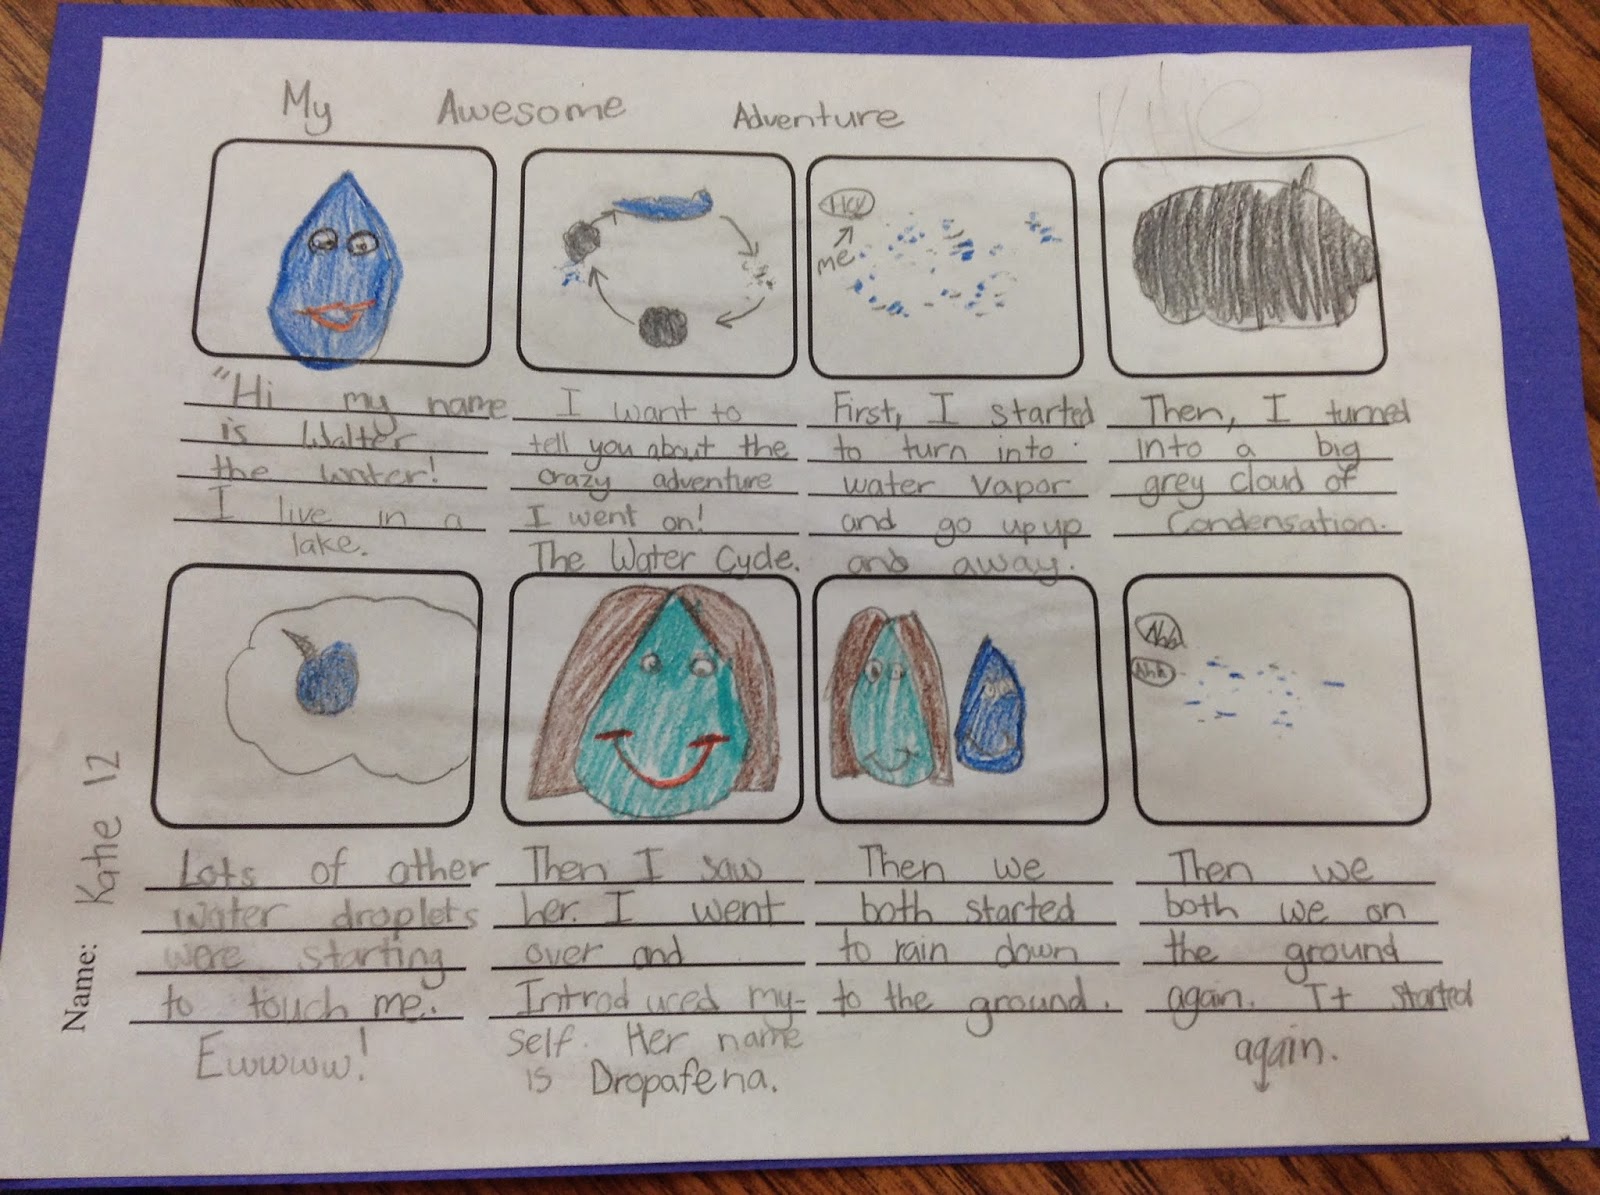 My Awesome Adventure
Katie
Hey
me
"Hi my name
is Walter
the water!
I live in a
lake.
I want to
tell you about the
crazy adventure
I went on!
The Water Cycle.
First, I started
to turn into
water vapor
and go up up
and away.
Then, I turned
into a big
grey cloud of
Condensation.
Ahh
Ahh
Lots of other
water droplets
were starting
to touch me.
Ewwww!
Then I saw
her. I went
over and
Introduced my-
self. Her name
is Dropafena.
Then we
both started
to rain down
to the ground.
Then we
both we on
the ground
again. It started
again.
Name: Katie 12